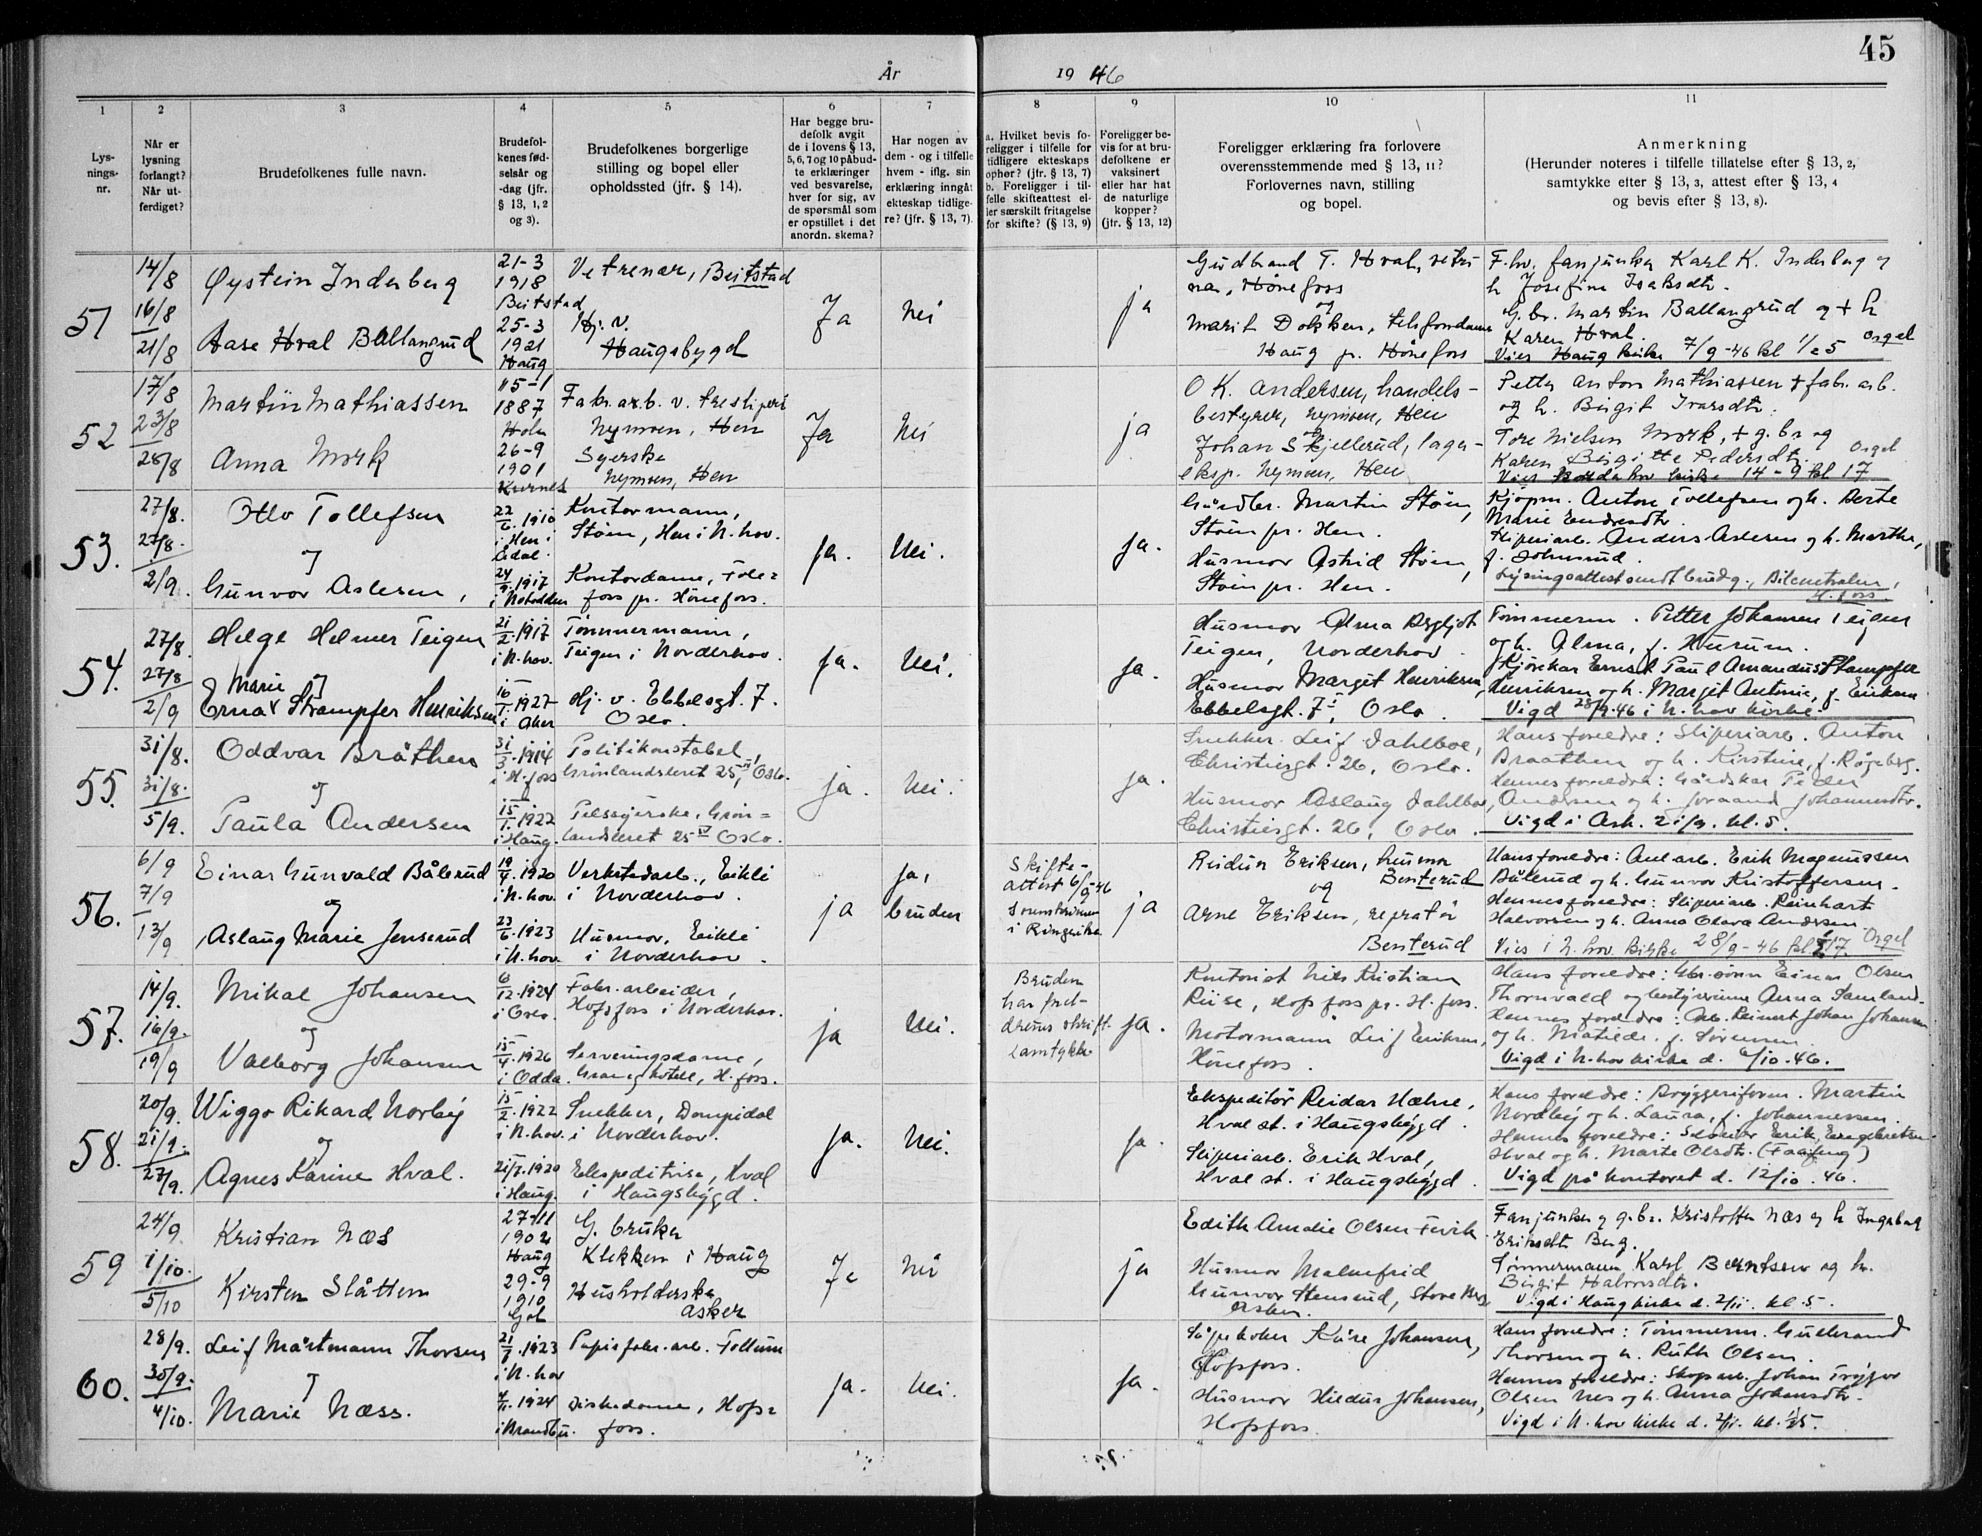 45
År 1946
1 2 3 4 5 6 7 8 9 10 11
Lys-
nings-
nr.
Når er
lysning
forlangt?
Når ut-
ferdiget?
Brudefolkenes fulle navn.
Brudefol-
kenes fød-
selsår og
-dag (jfr.
§ 13, 1, 2
og 3).
Brudefolkenes borgerlige
stilling og bopel eller
opholdssted (jfr. § 14).
Har begge bru-
defolk avgit
de i lovens § 13,
5, 6, 7 og 10 påbud-
te erklæringer
ved besvarelse,
hver for sig, av
de spørsmål som
er opstillet i det
anordn. skema?
Har nogen av
dem - og i tilfelle
hvem - iflg. sin
erklæring inngått
ekteskap tidlige-
re? (jfr. § 13, 7).
a. Hvilket bevis fo-
religger i tilfelle for
tidligere ekteskaps
ophør? (jfr. § 13, 7)
b. Foreligger i til-
felle skifteattest el-
ler særskilt fritagelse
for skifte? (§ 13, 9)
Foreligger be-
vis for at bru-
defolkene er
vaksinert
eller har hat
de naturlige
kopper?
(jfr. § 13, 12)
Foreligger erklæring fra forlovere
overensstemmende med § 13, 11?
Forlovernes navn, stilling
og bopel.
Anmerkning
(Herunder noteres i tilfelle tillatelse efter § 13, 2,
samtykke efter § 13, 3, attest efter § 13, 4
og bevis efter § 13, 8).
51
14/8
16/8
21/8
Øystein Inderberg
Aase Hval Ballangrud
21-3
1918
Beitstad
25-3
1921
Haug
Vetrenær, Beitstad
Hj. v.
Haugsbygd
Ja
Nei
ja
Gudbrand T. Hval, vetri-
nær, Hønefoss
og
Marit Dokken, telefondame
Haug pr. Hønefoss
F. hv. fanjunker Karl K. Inderberg og
h Josefine Isaksdtr.
G.br. Martin Ballangrud og + h
Karen Hval. Orgel
Vies Haug kirke 7/9-46 kl 1/2 5
52
17/8
23/8
28/8
Martin Mathiassen
Anna Mork
15-1
1887
Hole
26-9
1901
Fabr. arb. v. tresliperi
Nymoen, Hen
Syerske
Nymoen, Hen
Ja
Nei
ja
O K. Andersen, handels-
bestyrer, Nymoen, Hen
og
Johan Skjellerud, lager-
eksp. Nymoen, Hen
Petter Anton Mathiassen + fabr. arb.
og h. Birgit Ivarsdtr.
Tore Nielsen Mork, + g.br og
Karen Birgitte Pedersdtr. Orgel
Vies Norderhov kirke 14-9 kl 17
53.
27/8.
27/8.
2/9.
Olav Tollefsen
og
Gunvor Aslesen,
22/6.1910
i Hen i
24/9.1917
i Notodden
Kontormann,
Støen, Hen i N.hov.
Kontordame, Fole=
foss pr. Hønefoss.
Ja.
Nei.
Ja.
Gårdbr. Martin Støen,
Støen pr. Hen.
Husmor Astrid Støen,
Støen pr. Hen.
Kjøpm. Anton Tollefsen og h. Dorte
Marie Endresdtr.
Sliperiarb. Anders Aslesen og h. Marthe,
f. Johnsrud.
Lysningsattest sendt brudg., Bilcentralen,
H.foss.
54.
27/8.
27/8
2/9
Helge Helmer Teigen
og
Erna Marie Strampfer Henriksen
21/2.1917
i N.hov.
16/1.1927
i Aker
Tømmermann,
Teigen i Norderhov.
Hj. v. Ebbelsgt. 7.
Oslo.
Ja.
Nei.
Ja.
Husmor Alma Bergljot
Teigen, Norderhov.
Husmor Margit Henriksen,
Ebbelsgt. 7, Oslo.
Tømmerm. Petter Johansen Teigen
og h. Alma, f. Hurum.
Kjørekar Ernst Paul Amandus Strampfer
Henriksen og h. Margit Antonie, f. Eriksen
Vigd 28/9.46 i N.hov kirke.
55.
31/8.
31/8.
5/9.
Oddvar Bråthen
og
Paula Andersen
31/3.1914
i H.foss
15/1.1922
i Haug.
Politikonstabel,
Grønlandsleret 25 IV, Oslo.
Pelssyerske, Grøn=
landsleret 25 IV Oslo.
Ja.
Nei.
Ja.
Snekker Leif Dahlboe,
Christiesgt. 26, Oslo.
Husmor Aslaug Dahlboe,
Christiesgt. 26, Oslo.
Hans foreldre: Sliperiarb. Anton
Braathen og h. Kirstine, f. Røgeberg.
Hennes foreldre: Gårdskar Peder
Andersen og h. Joraand Johannesdtr.
Vigd i Ask. 21/9. kl. 5.
56.
6/9
7/9
13/9
Einar Gunvald Bålerud
og
Aslaug Marie Jenserud
19/4.1920
i N.hov.
23/6.1923
i N.hov
Verkstedarb., Eikli
i Norderhov.
Husmor, Eikli
i Norderhov.
ja
ja,
bruden
Skifte-
attest 6/9-46
Sorenskriveren
i Ringerike
ja
Reidun Eriksen, husmor
Benterud
og
Arne Eriksen, repratør
Benterud
Hans foreldre: Anl.arb. Erik Magnussen
Bålerud og h. Gunvor Kristoffersen.
Hennes foreldre: Sliperiarb. Reinhart
Halvorsen og h. Anna Olava Andersen.
Vies i N.hov kirke 28/9-46 kl 17. Orgel
57.
14/9.
16/9.
19/9
Mikal Johansen
og
Valborg Johansen
6/12.1924
i Oslo.
15/4.1926
i Odda.
Fabr. arbeider,
Hofsfoss i Norderhov.
Serveringsdame,
Grand hotell, H.foss.
ja
Nei.
Bruden
har forel-
drenes skriftl.
samtykke
Ja.
Kontorist Nils Kristian
Riise, Hofsfoss pr. H.foss.
Motormann Leif Eriksen,
Hønefoss.
Hans foreldre: Gbr.sønn Einar Olsen
Thornvald og bestyrerinne Anna Samland.
Hennes foreldre: Arb. Reinert Johan Johansen
og h. Matilde, f. Sørensen.
Vigd i N.hov kirke d. 6/10.46.
58.
20/9.
21/9.
27/9.
Wiggo Rikard Norby
og
Agnes Karine Hval.
15/2.1922
i N.hov.
21/7.1920
i Haug.
Snekker, Dompidal
i Norderhov.
Ekspeditrise, Hval
i Haugsbygd.
Ja.
Nei.
Ja.
Ekspeditør Reidar Næhre,
Hval st. i Haugsbygd.
Sliperiarb. Erik Hval,
Hval st. i Haugsbygd.
Hans foreldre: Bryggeriform. Martin
Nordby og h. Laura, f. Johannessen.
Hennes foreldre: Erik Engebretsen
Hval og h. Marte Olsdtr.
Vigd på kontoret d. 12/10. 46.
59
24/9
1/10.
5/10
Kristian Næs
Kirsten Slåtten
27-11
1902
Haug
29-9
1910
Gol
G. bruker
Klekken i Haug
Husholderske
Asker
Ja
Nei
ja
Edith Amalie Olsen
Husmor Malmfrid
Gunvor Stensrud, Store Berg
Asker.
Fanjunker og g.br. Kristoffer Næs og h Ingeborg
Eriksdtr Berg.
Tømmermann Karl Berntsen og h.
Birgit Halvorsdtr.
Vigd i Haug kirke d. 2/11. kl. 5.
60.
28/9.
30/9.
4/10.
Leif Martmann Thorsen
og
Marie Næss.
21/7.1923
i N.hov
7/1.1924
i Brandbu.
Papirfabr. arb. Follum
Diskedame, Hofs=
foss.
Ja.
Nei.
Ja.
Såpekoker Kåre Johansen,
Hofsfoss.
Husmor Hildur Johansen,
Hofsfoss.
Hans foreldre: Tømmerm. Gulbrand
Thorsen og h. Ruth Olsen.
Hennes foreldre: Skogsarb. Johan Trygve
Olsen Nes og h. Anna Johansdtr.
Vigd i N.hov kirke d. 2/11. kl. 1/2 5.